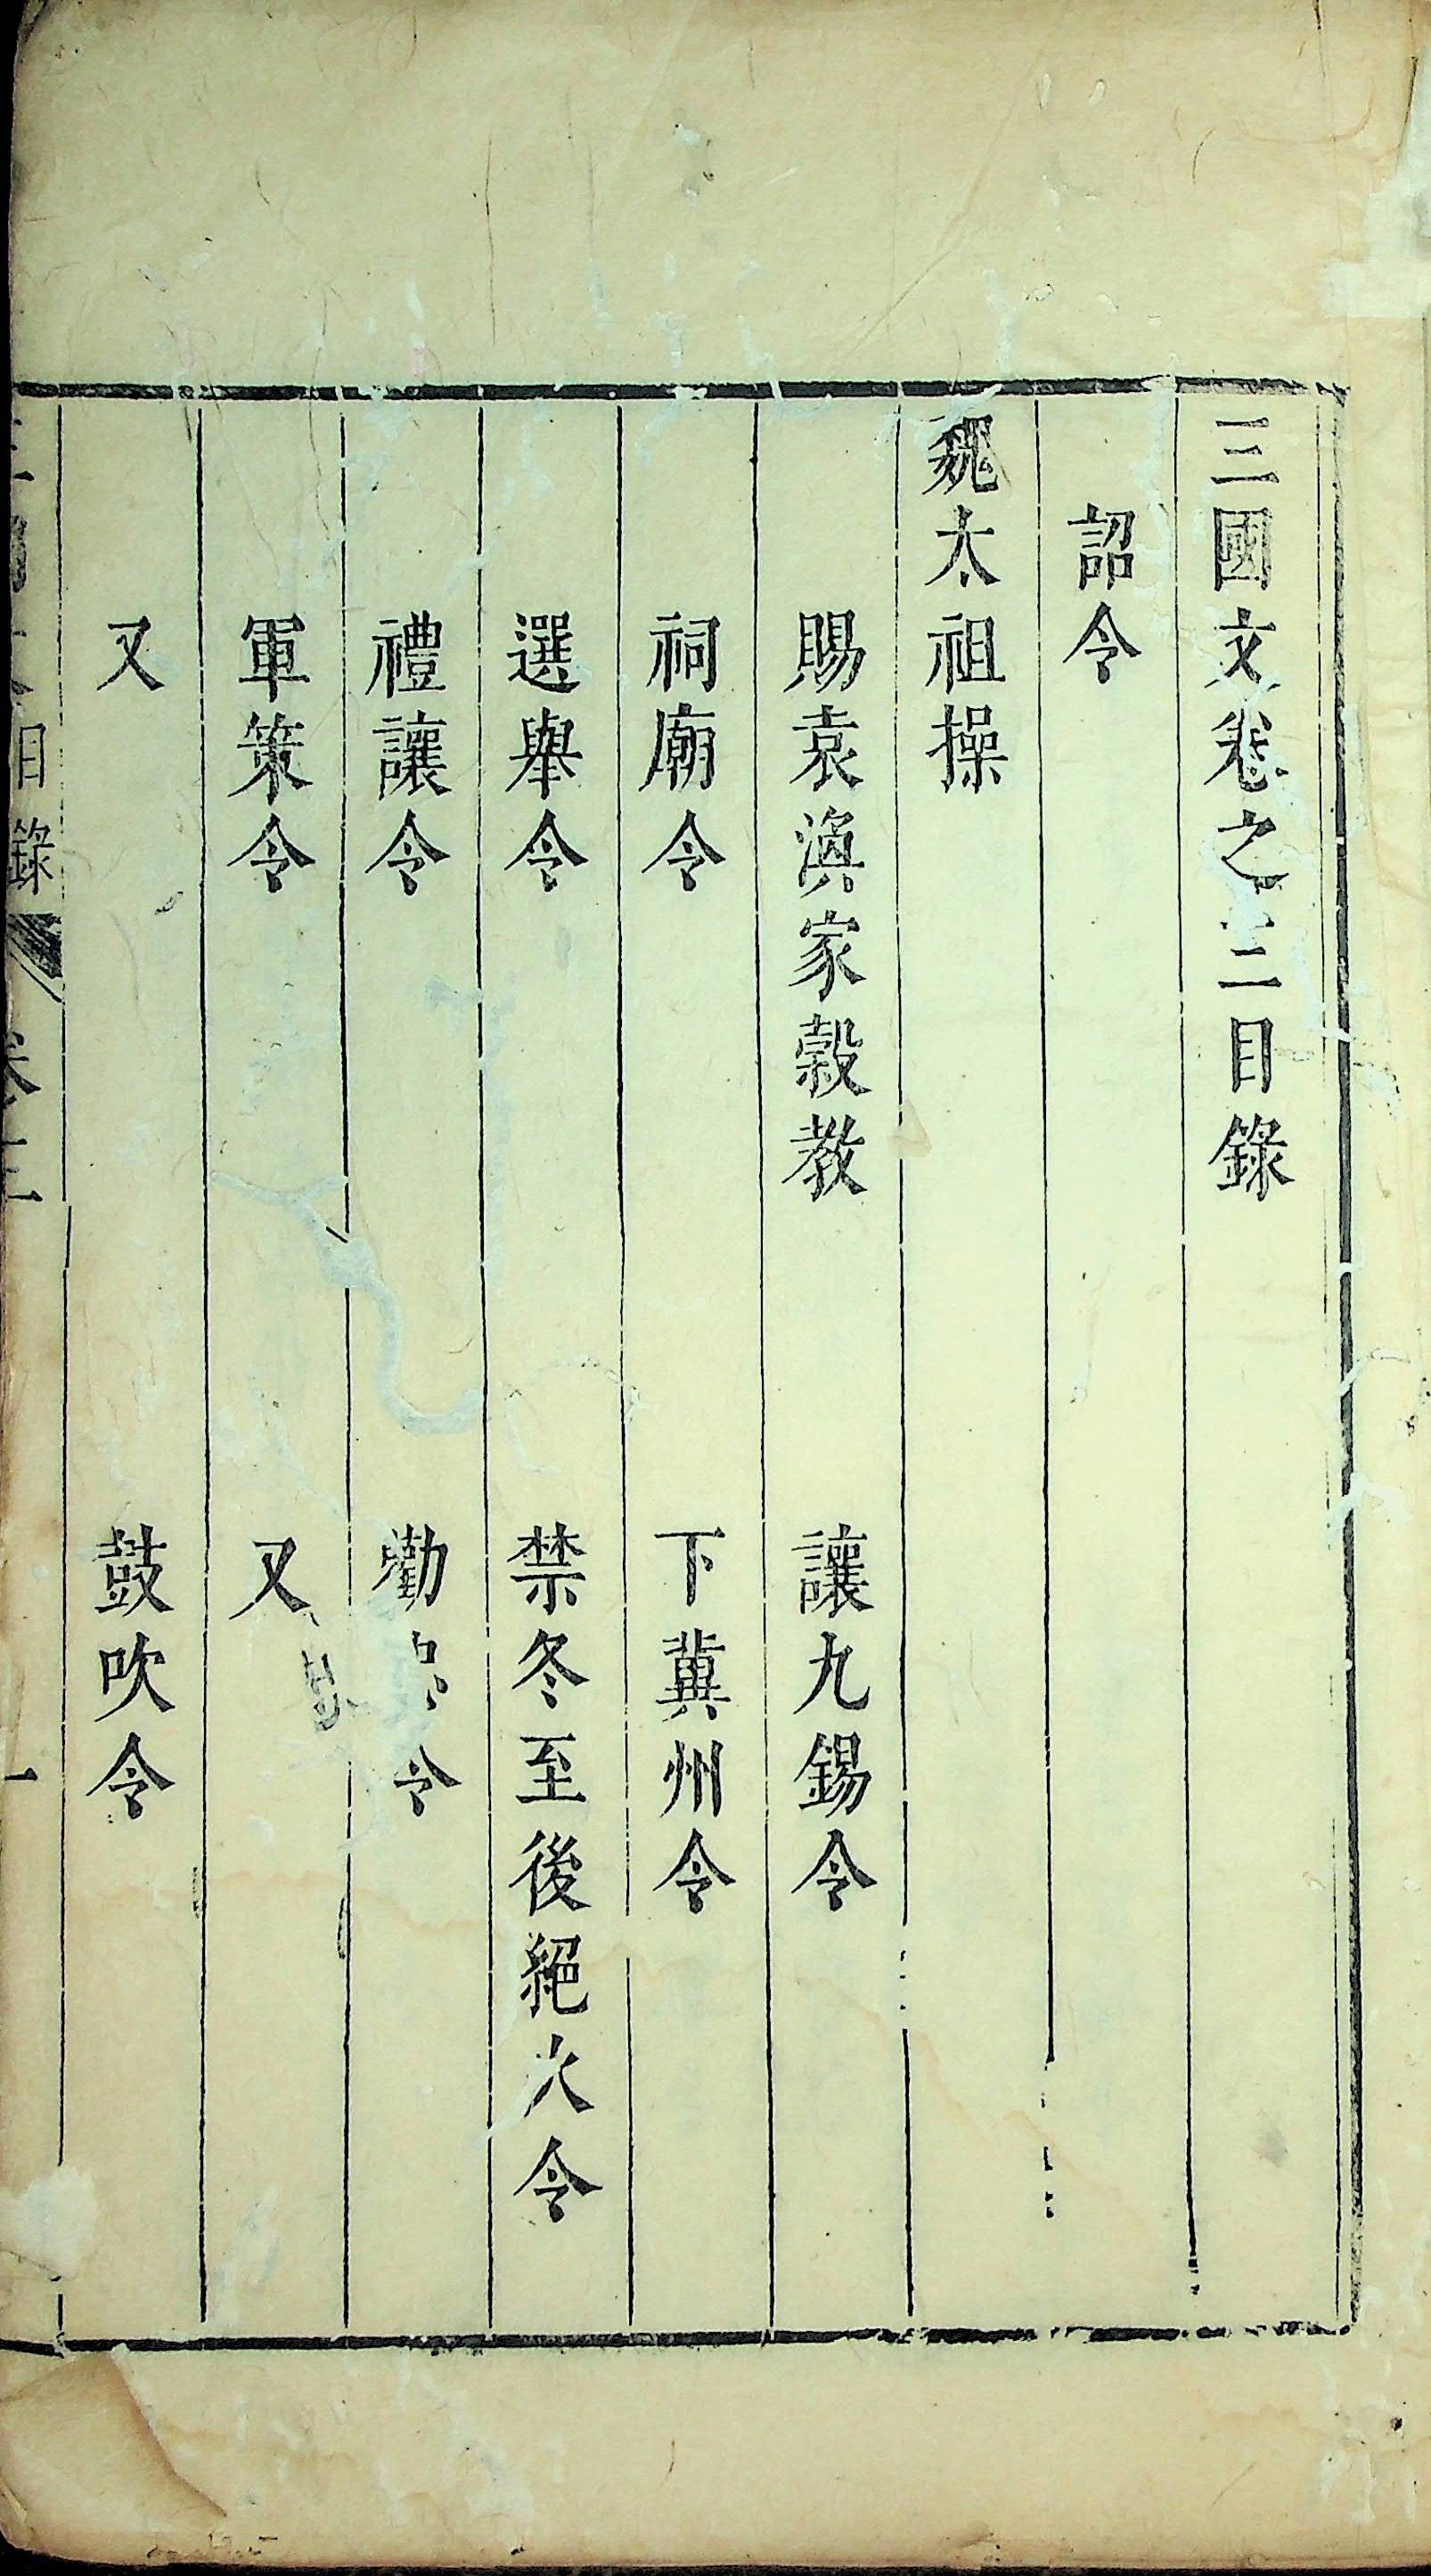 三國文卷之三目錄
詔令
魏太祖操
賜袁渙家穀教　讓九錫令
祠廟令　下冀州令
選舉令　禁冬至後絕火令
禮讓令　勸令
軍策令　又
又　鼓吹令
目錄　卷三　一